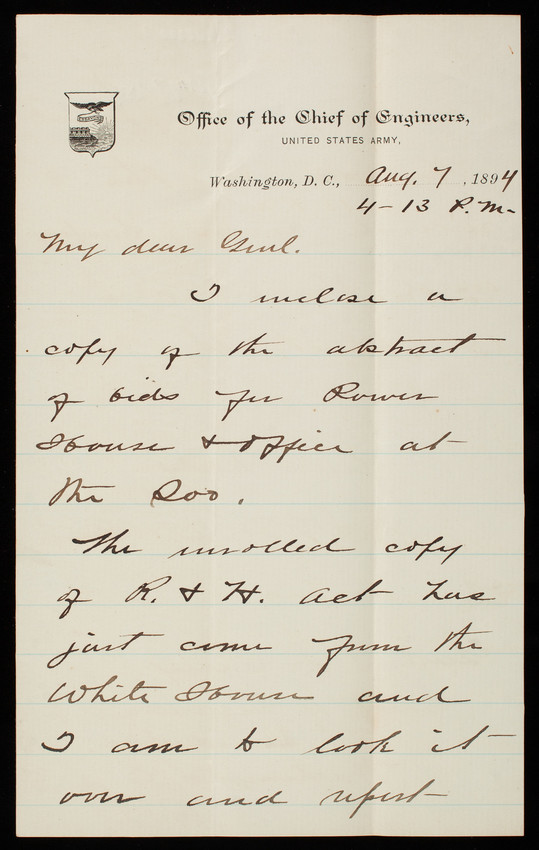 Office of the Chief of Engineers,
UNITED STATES ARMY,
Washington, D. C., Aug. 7, 1894
4-13 P.M.
My dear Genl.
I inclose a
copy of the abstract
of bids for Power
House & Office at
the Soo.
The enrolled copy
of R. & H. Act has
just come from the
White House and
I am to look it
over and report